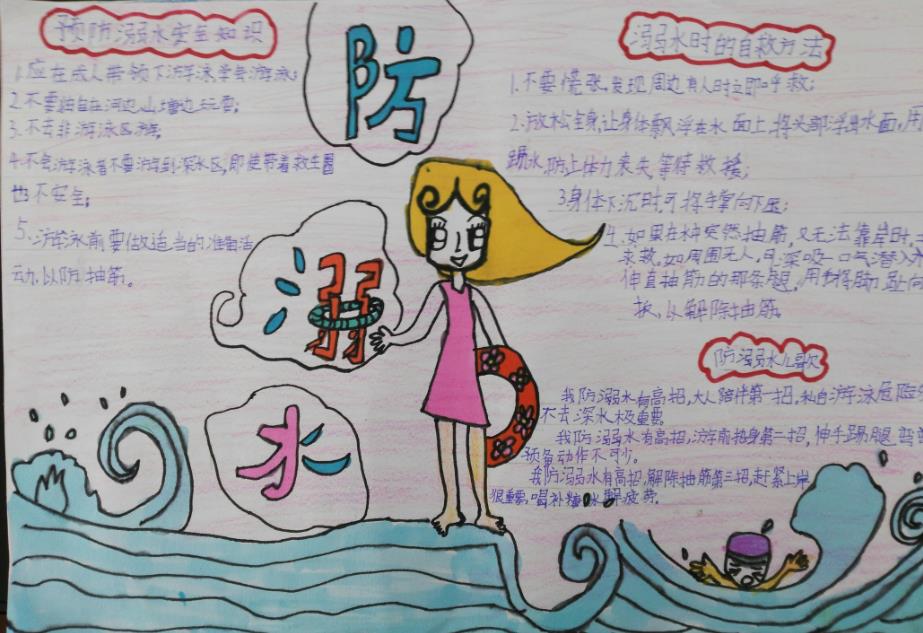 预防溺水安全知识
1.应在成人带领下游泳学会游泳;
2.不要独自在河边山塘边玩耍;
3.不去非游泳区游泳;
4.不会游泳者不要游到深水区,即使带着救生圈
也不安全;
5.游泳前要做适当的准备活
动,以防抽筋。
防
溺
水
溺水时的自救方法
1.不要慌张,发现周边有人时立即呼救;
2.放松全身,让身体飘浮在水面上,将头部浮出水面,用
踢水,防止体力丧失,等待救援;
3.身体下沉时,可将手掌向下压;
4.如果在水中突然抽筋,又无法靠岸时,
求救,如周围无人,可深吸一口气潜入水
伸直抽筋的那条腿,用手将脚趾向
扳,以解除抽筋。
防溺水儿歌
我防溺水有高招,大人陪伴第一招,私自游泳危险
不去深水极重要。
我防溺水有高招,游前热身第二招,伸手踢腿弯
预备动作不可少。
我防溺水有高招,解除抽筋第三招,赶紧上岸
狠重要,喝补糖水解疲劳.